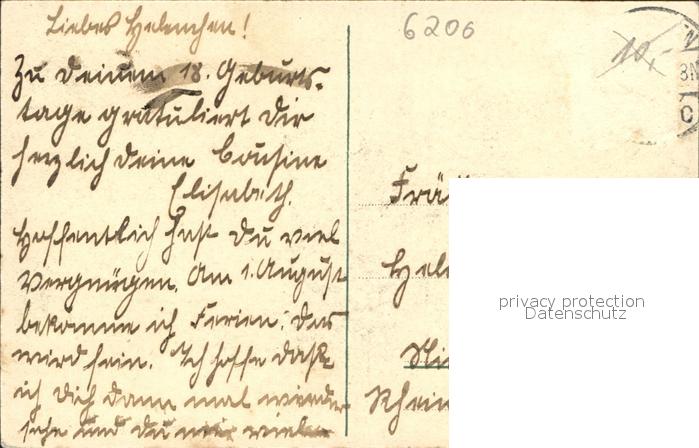 Liebes Helenchen!
Zu deinem 18. Geburts-
tage gratuliert dir
herzlich deine Cousine
Elisabeth.
Hoffentlich hast du viel
Vergnügen. Am 1. August
bekomme ich Ferien; das
wird fein. Ich hoffe daß
ich dich dann mal wieder
sehe und du
6206
10,-
Hele
Rhein
privacy protection
Datenschutz